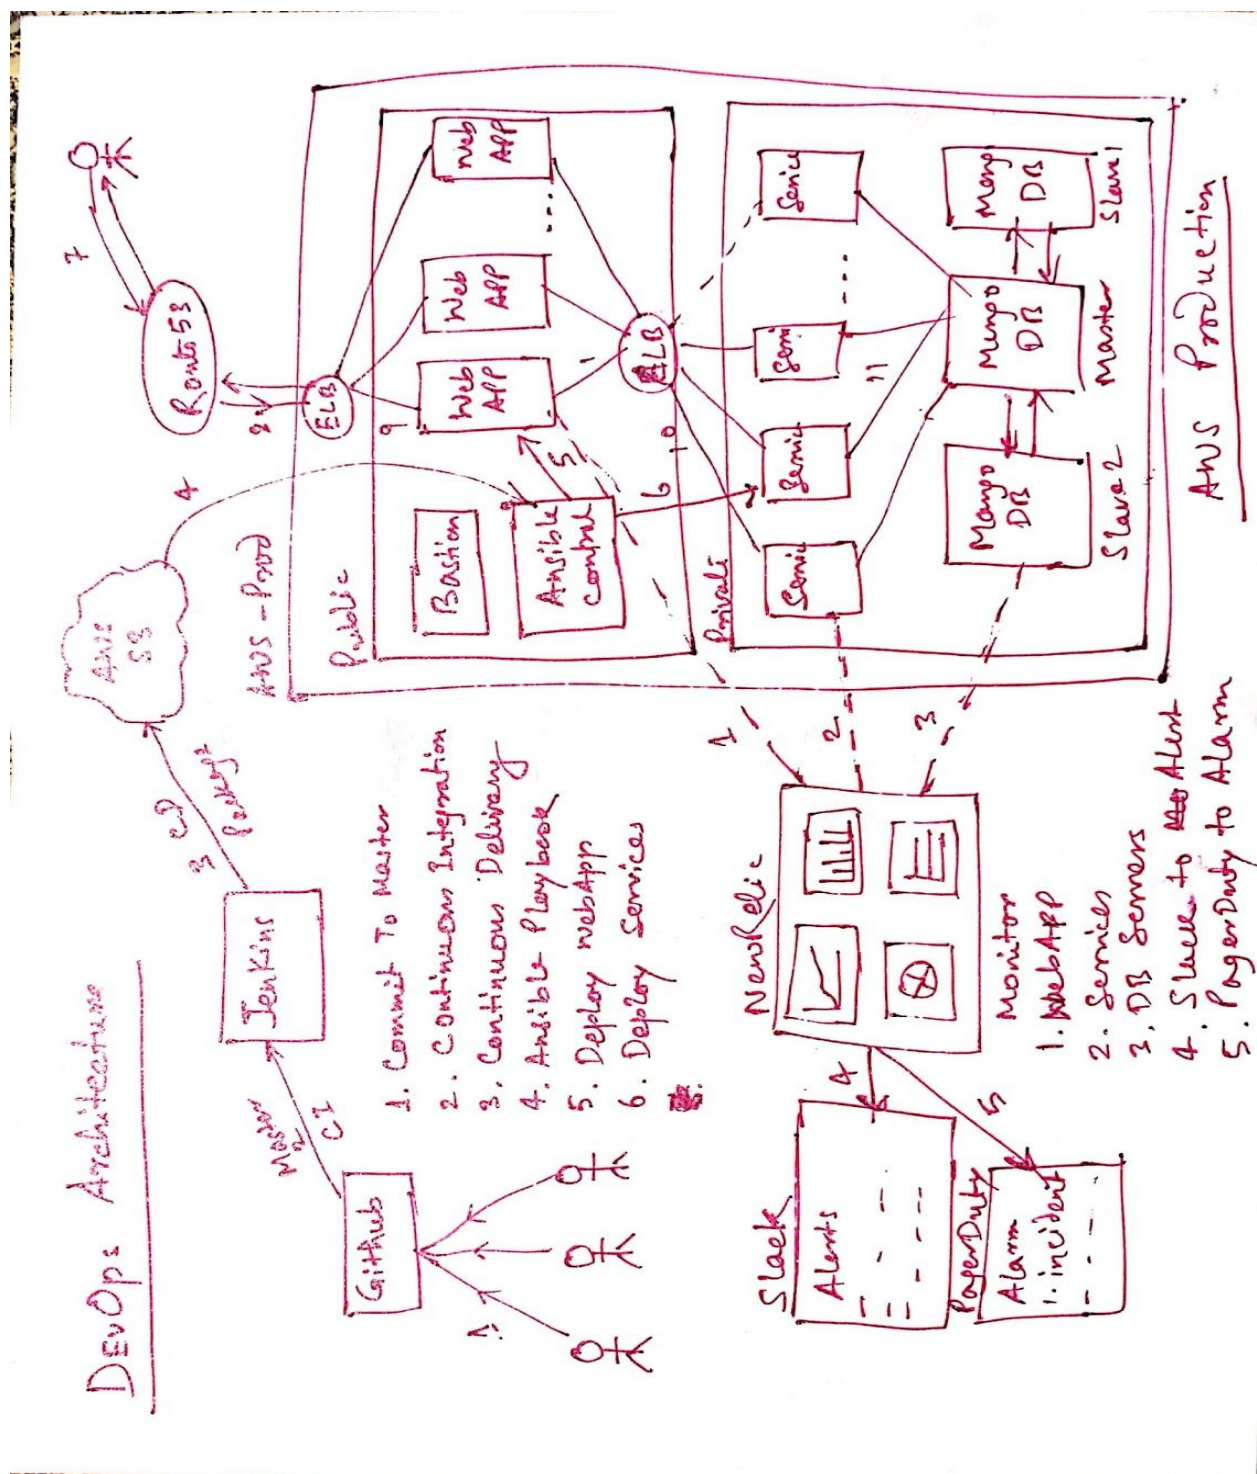 DEVOps Architecture
Github
1
Master
2
CI
Jenkins
3
CD
Package
AWS
S3
4
1. Commit To Master
2. Continuous Integration
3. Continuous Delivery
4. Ansible Playbook
5. Deploy WebApp
6. Deploy Services
7
Route 53
8
ELB
AWS - Prod
Public
Bastion
Ansible
Control
5
6
9
Web
APP
Web
APP
Web
APP
....
ALB
10
Private
Servic
Servic
Servi
....
Service
11
Mongo
DB
Slave 2
Mongo
DB
Master
Mongo
DB
Slave 1
AWS Production
1
2
3
NewRelic
Monitor
1. WebAPP
2. Services
3. DB Servers
4. Slack to Alert
5. PagerDuty to Alarm
4
5
Slack
Alerts
PagerDuty
Alarm
1. incident